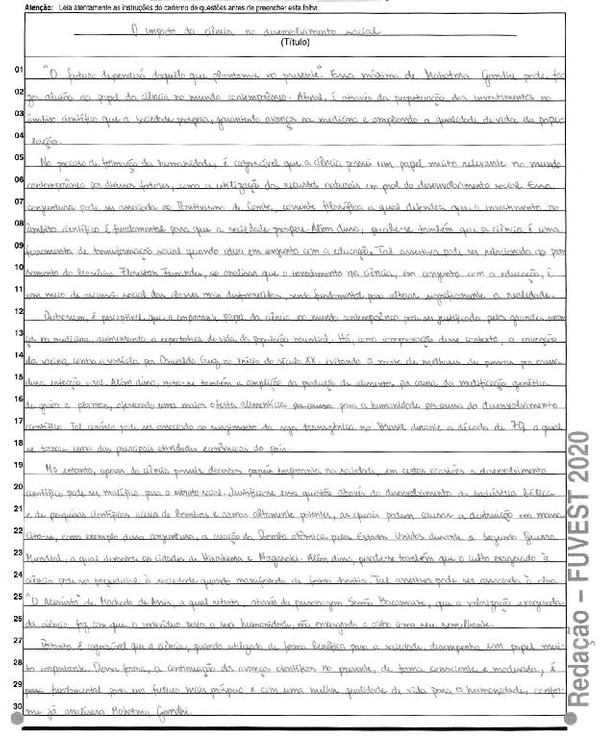 Atenção: Leia atentamente as instruções do caderno de questões antes de preencher esta folha.
O impacto da ciência no desenvolvimento social
(Título)
01 "O futuro dependerá daquilo que plantamos no presente". Essa máxima de Mahatma Gandhi pode fa-
02 zer alusão ao papel da ciência no mundo contemporâneo. Afinal, é através da perpetuação dos investimentos no
03 âmbito científico que a sociedade prospera, garantindo avanços na medicina e ampliando a qualidade de vida da popu-
04 lação.
05 No processo de formação da humanidade, é cognoscível que a ciência possui um papel muito relevante no mundo
06 contemporâneo por diversos fatores, como a utilização de recursos naturais em prol do desenvolvimento social. Essa
07 conjuntura pode ser associada ao Positivismo de Comte, corrente filosófica a qual defendia que o investimento no
08 âmbito científico é fundamental para que a sociedade prospere. Além disso, percebe-se também que a ciência é uma
09 ferramenta de transformação social quando atua em conjunto com a educação. Tal assertiva pode ser relacionada ao pen-
10 samento do brasileiro Florestan Fernandes, ao analisar que o investimento na ciência, em conjunto com a educação, é
11 um meio de ascensão social das classes mais desfavorecidas, sendo fundamental para alterar significamente a realidade.
12 Outrossim, é perceptível que o importante papel da ciência no mundo contemporâneo pode ser justificado pelos grandes avan-
13 ços na medicina, aumentando a expectativa de vida da população mundial. Há, como comprovação desse contexto, a invenção
14 da vacina contra a varíola por Oswaldo Cruz no início do século XX, evitando a morte de milhares de pessoas por causa
15 dessa infecção viral. Além disso, nota-se também a ampliação da produção de alimentos por causa da modificação genética
16 de grãos e plantas, oferecendo uma maior oferta alimentícia para a humanidade por causa do desenvolvimento
17 científico. Tal cenário pode ser associado ao surgimento da soja transgênica no Brasil durante a década de 70, a qual
18 se tornou uma das principais atividades econômicas do país.
19 No entanto, apesar da ciência possuir diversos papéis importantes na sociedade, em certas ocasiões o desenvolvimento
20 científico pode ser maléfico para o extrato social. Justifica-se essa questão através do desenvolvimento da indústria bélica
21 e de pesquisas científicas acerca de bombas e armas altamente potentes, as quais podem causar a destruição em massa.
22 Cita-se, como exemplo dessa conjuntura, a criação da Bomba Atômica pelos Estados Unidos durante a Segunda Guerra
23 Mundial, a qual devastou as cidades de Hiroshima e Nagasaki. Além disso, percebe-se também que o culto exagerado à
24 ciência pode ser prejudicial à sociedade quando manifestado de forma Tal assertiva pode ser associada à obra
25 "O Alienista" de Machado de Assis, a qual retrata, através da personagem Simão Bacamarte, que a valorização exagerada
26 da ciência faz com que o indivíduo perca a sua humanidade, não enxergando o outro como seu semelhante.
27 Portanto é cognoscível que a ciência, quando utilizada de forma benéfica para a sociedade, desempenha um papel mui-
28 to importante. Dessa forma, a continuação dos avanços científicos no presente, de forma consciente e moderada, é
29 fundamental para um futuro mais próspero e com uma melhor qualidade de vida para a humanidade, confor-
30 me já analisara Mahatma Gandhi.
Redação – FUVEST 2020